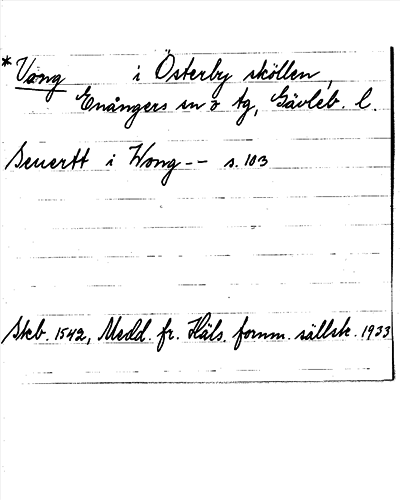 * Vong i Österby sköllen,
Enångers sn o tg, Gävleb. l.
Seuertt i Wong -- s. 103
Skb. 1542, Medd. fr. Häls. fornm. sällsk. 1933